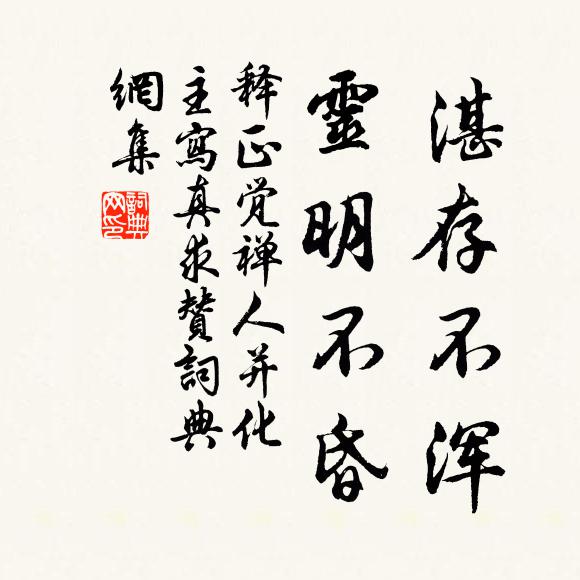 湛存不浑
靈明不昏
释正觉禅人并化
主寫真求贊詞典
網集
詞典網印